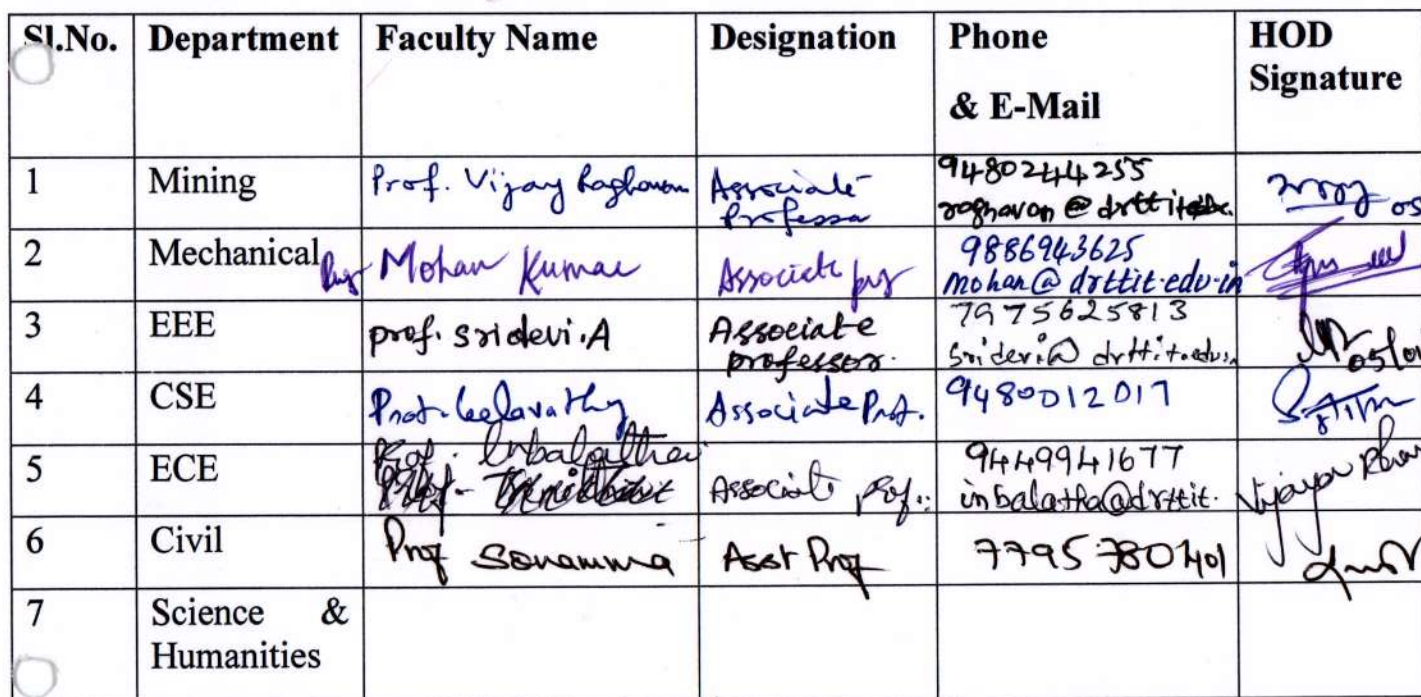 Sl.No. Department Faculty Name Designation Phone HOD
& E-Mail Signature
1 Mining Prof. Vijay Raghavan Associate Professor 9480244255
raghavan@drttit
2 Mechanical Prof Mohan Kumar Associate prof 9886943625
mohan@drttit.edu.in
3 EEE prof. sridevi.A Associate professor. 7975625813
sridevi@drttit.edu.in
4 CSE Prof. Leelavathy Associate Prof. 9480012017
5 ECE Prof. Inbalatha Associate prof. 9449941677
inbalatha@drttit.
6 Civil Prof Sonamma Asst Prof 7795780401
7 Science &
Humanities